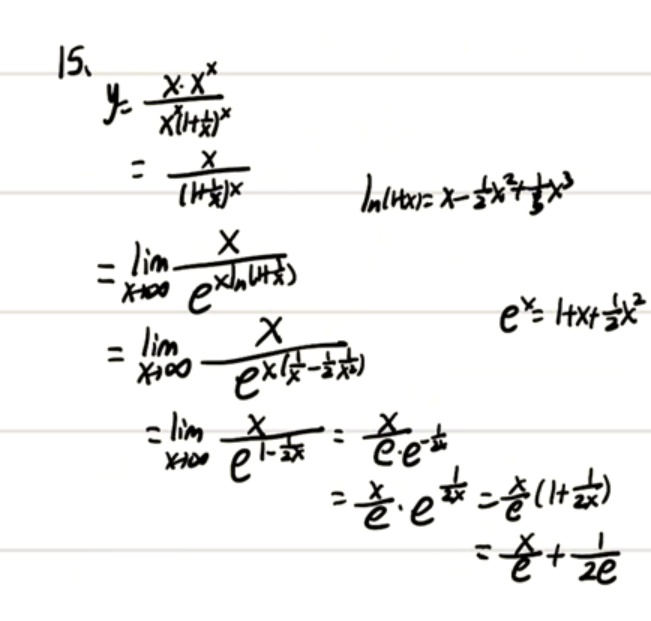 15、
y= \frac{x·x^x}{x^x(1+\frac{1}{x})^x}
= \frac{x}{(1+\frac{1}{x})^x}
ln(1+x)= x-\frac{1}{2}x^2+\frac{1}{3}x^3
= \lim_{x→∞} \frac{x}{e^{x ln(1+\frac{1}{x})}}
e^x= 1+x+\frac{1}{2}x^2
= \lim_{x→∞} \frac{x}{e^{x(\frac{1}{x}-\frac{1}{2}\frac{1}{x^2})}}
= \lim_{x→∞} \frac{x}{e^{1-\frac{1}{2x}}} = \frac{x}{e·e^{-\frac{1}{2x}}}
= \frac{x}{e}·e^{\frac{1}{2x}} = \frac{x}{e}(1+\frac{1}{2x})
= \frac{x}{e}+\frac{1}{2e}